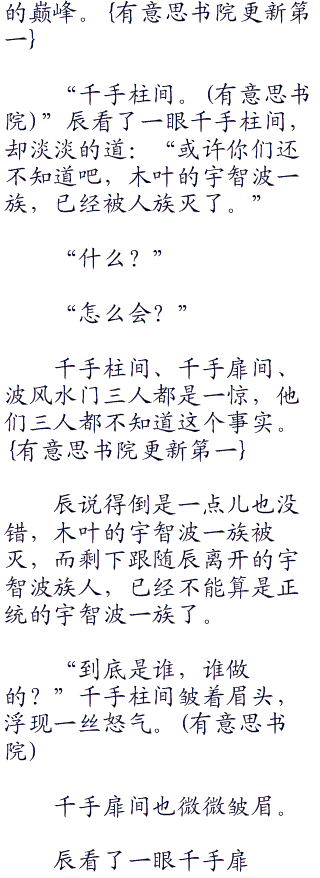 的巅峰。{有意思书院更新第
一}
“千手柱间。(有意思书
院)”辰看了一眼千手柱间，
却淡淡的道：“或许你们还
不知道吧，木叶的宇智波一
族，已经被人族灭了。”
“什么？”
“怎么会？”
千手柱间、千手扉间、
波风水门三人都是一惊，他
们三人都不知道这个事实。
{有意思书院更新第一}
辰说得倒是一点儿也没
错，木叶的宇智波一族被
灭，而剩下跟随辰离开的宇
智波族人，已经不能算是正
统的宇智波一族了。
“到底是谁，谁做
的？”千手柱间皱着眉头，
浮现一丝怒气。(有意思书
院)
千手扉间也微微皱眉。
辰看了一眼千手扉